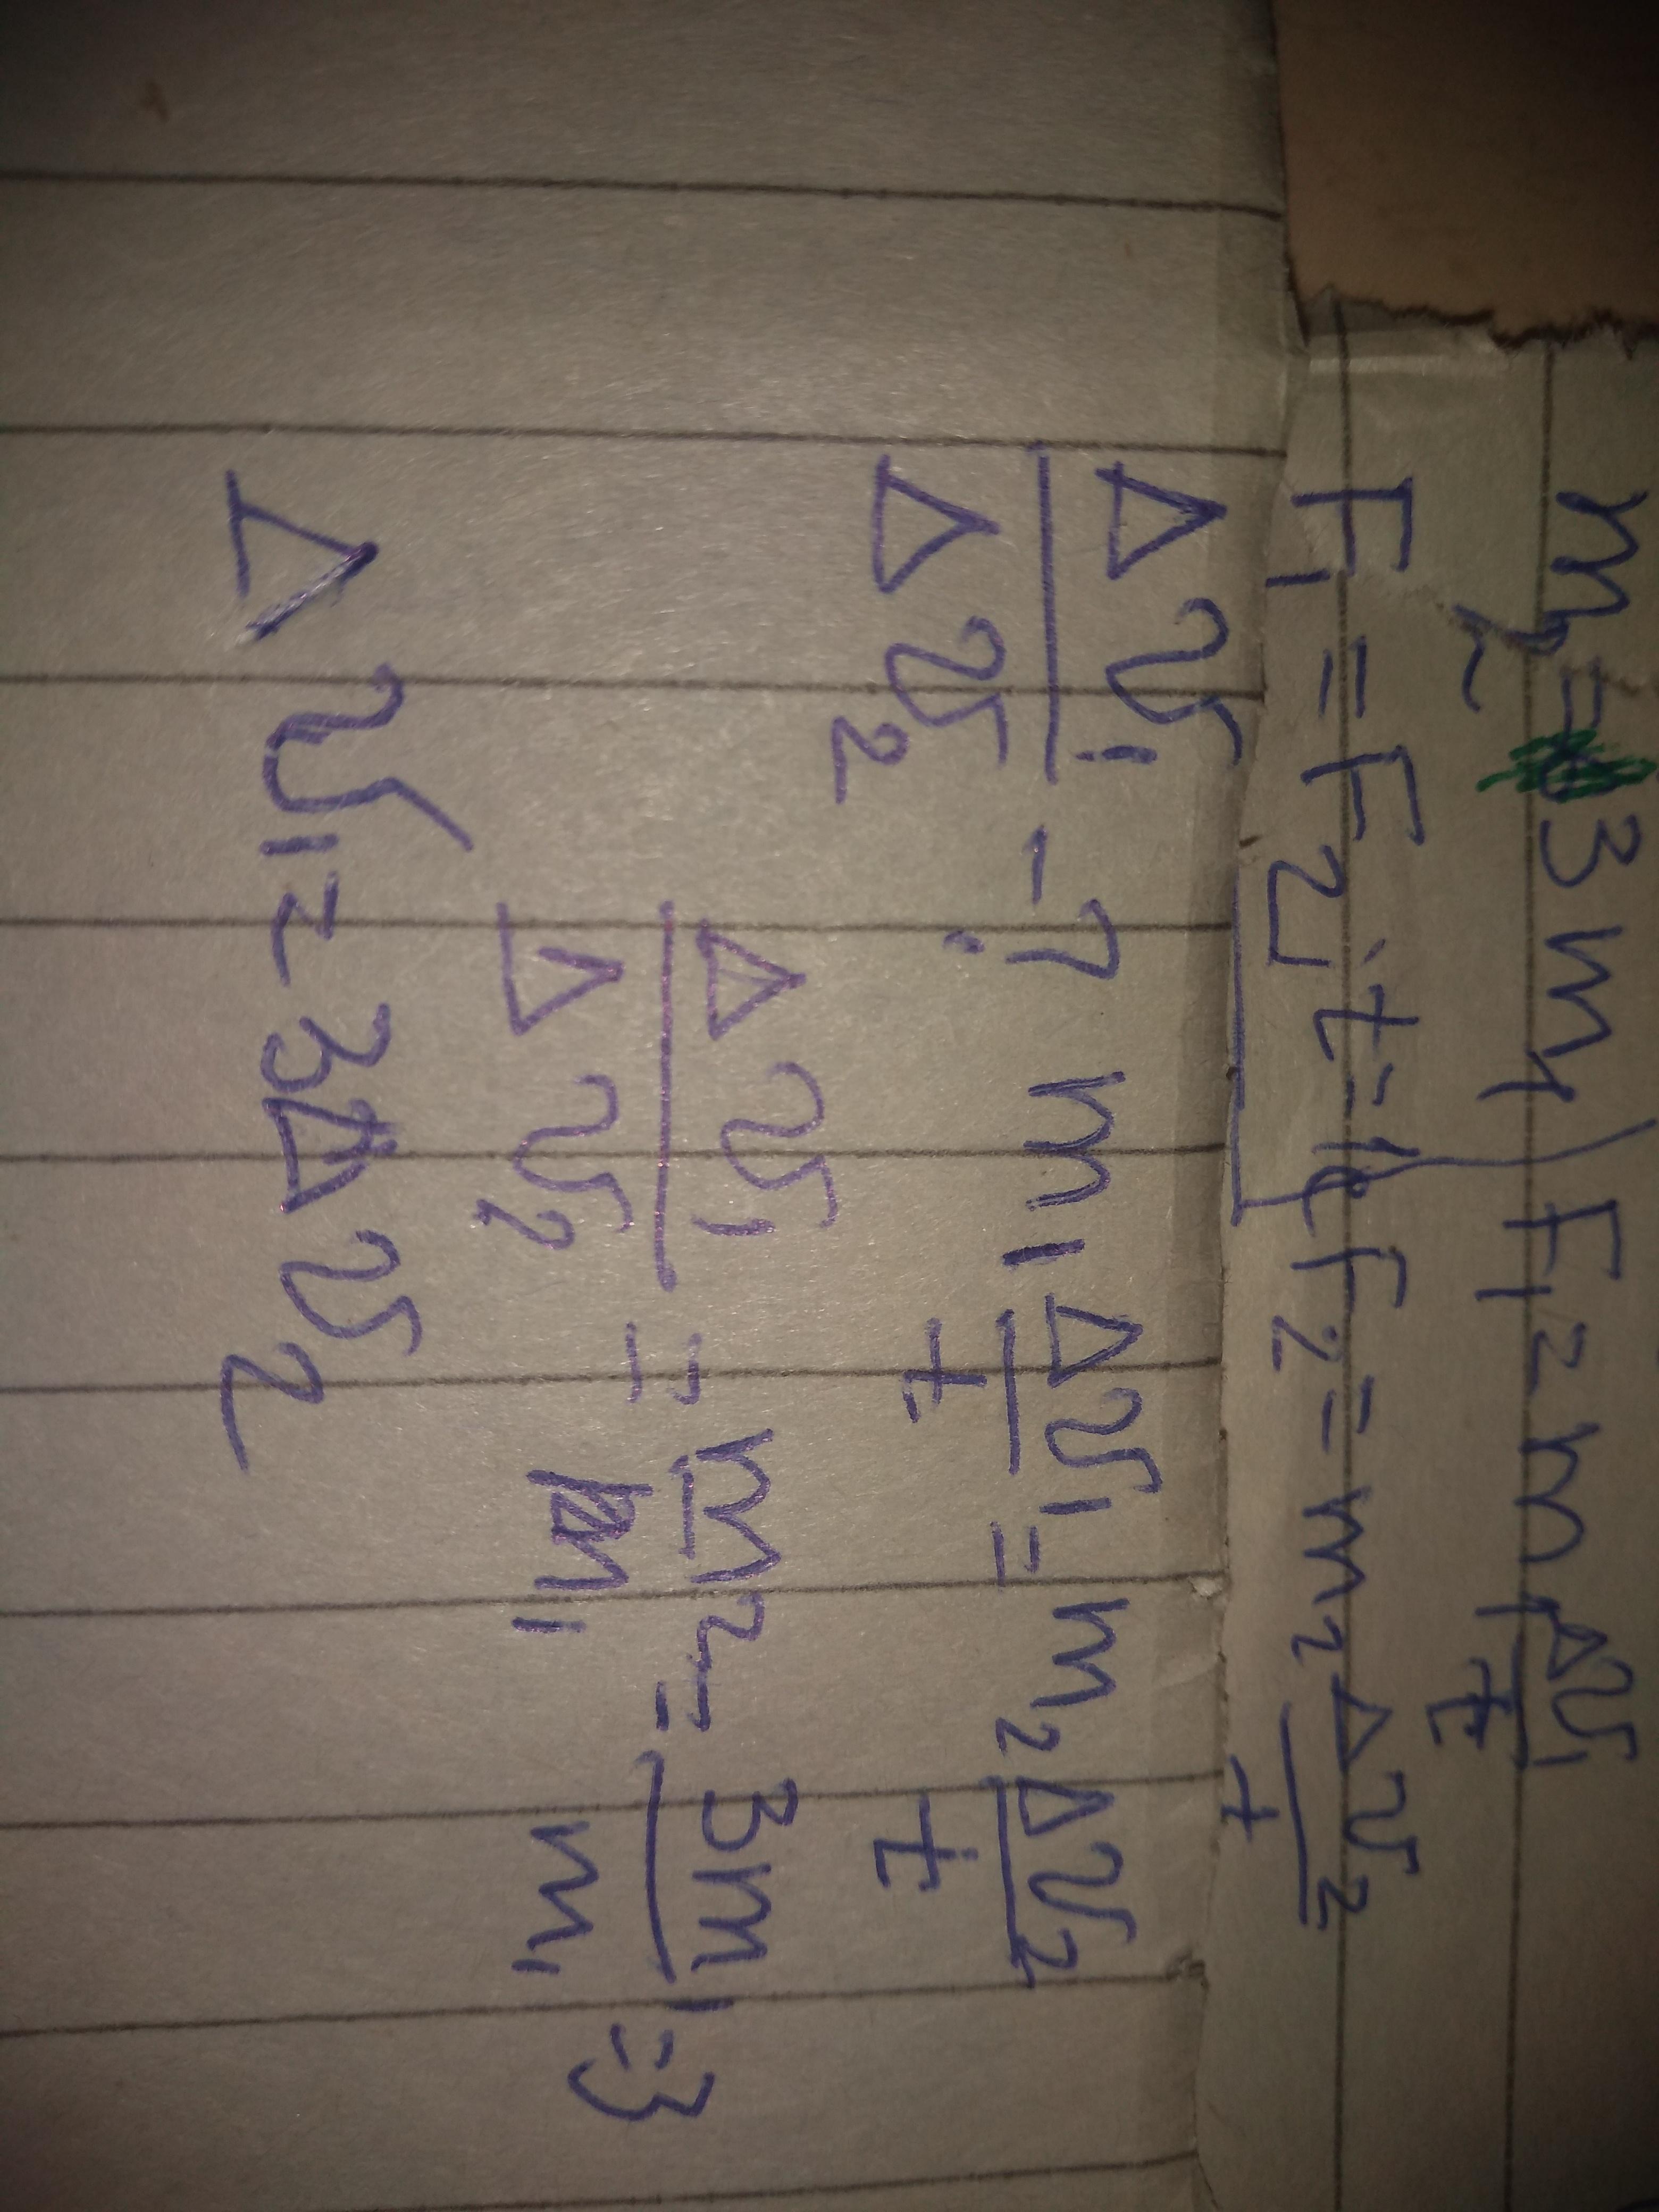 m₂ = 3 m₁ F₁ = m₁ Δv₁/t
F₁ = F₂, t - F₂ = m₂ Δv₂/t
Δv₁/Δv₂ - ? m₁ Δv₁/t = m₂ Δv₂/t
Δv₁/Δv₂ = m₂/m₁ = 3m₁/m₁ = 3
Δv₁ = 3Δv₂